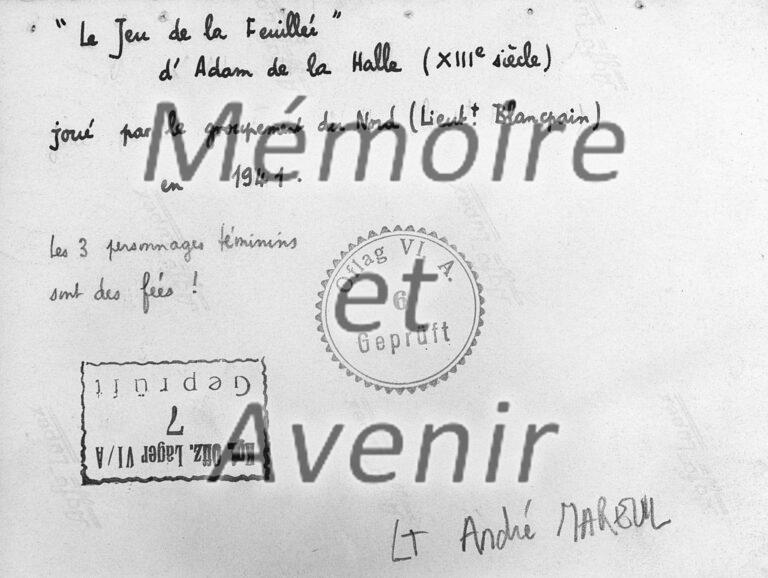 " Le Jeu de la Feuillée "
d'Adam de la Halle (XIIIe siècle)
joué par le groupement du Nord (Lieutt Blancpain)
en 1941.
Les 3 personnages féminins
sont des fées !
Mémoire
et
Avenir
Oflag VI A.
6
Geprüft
Geprüft
7
Offz. Lager VI/A
Lt André MAREUIL